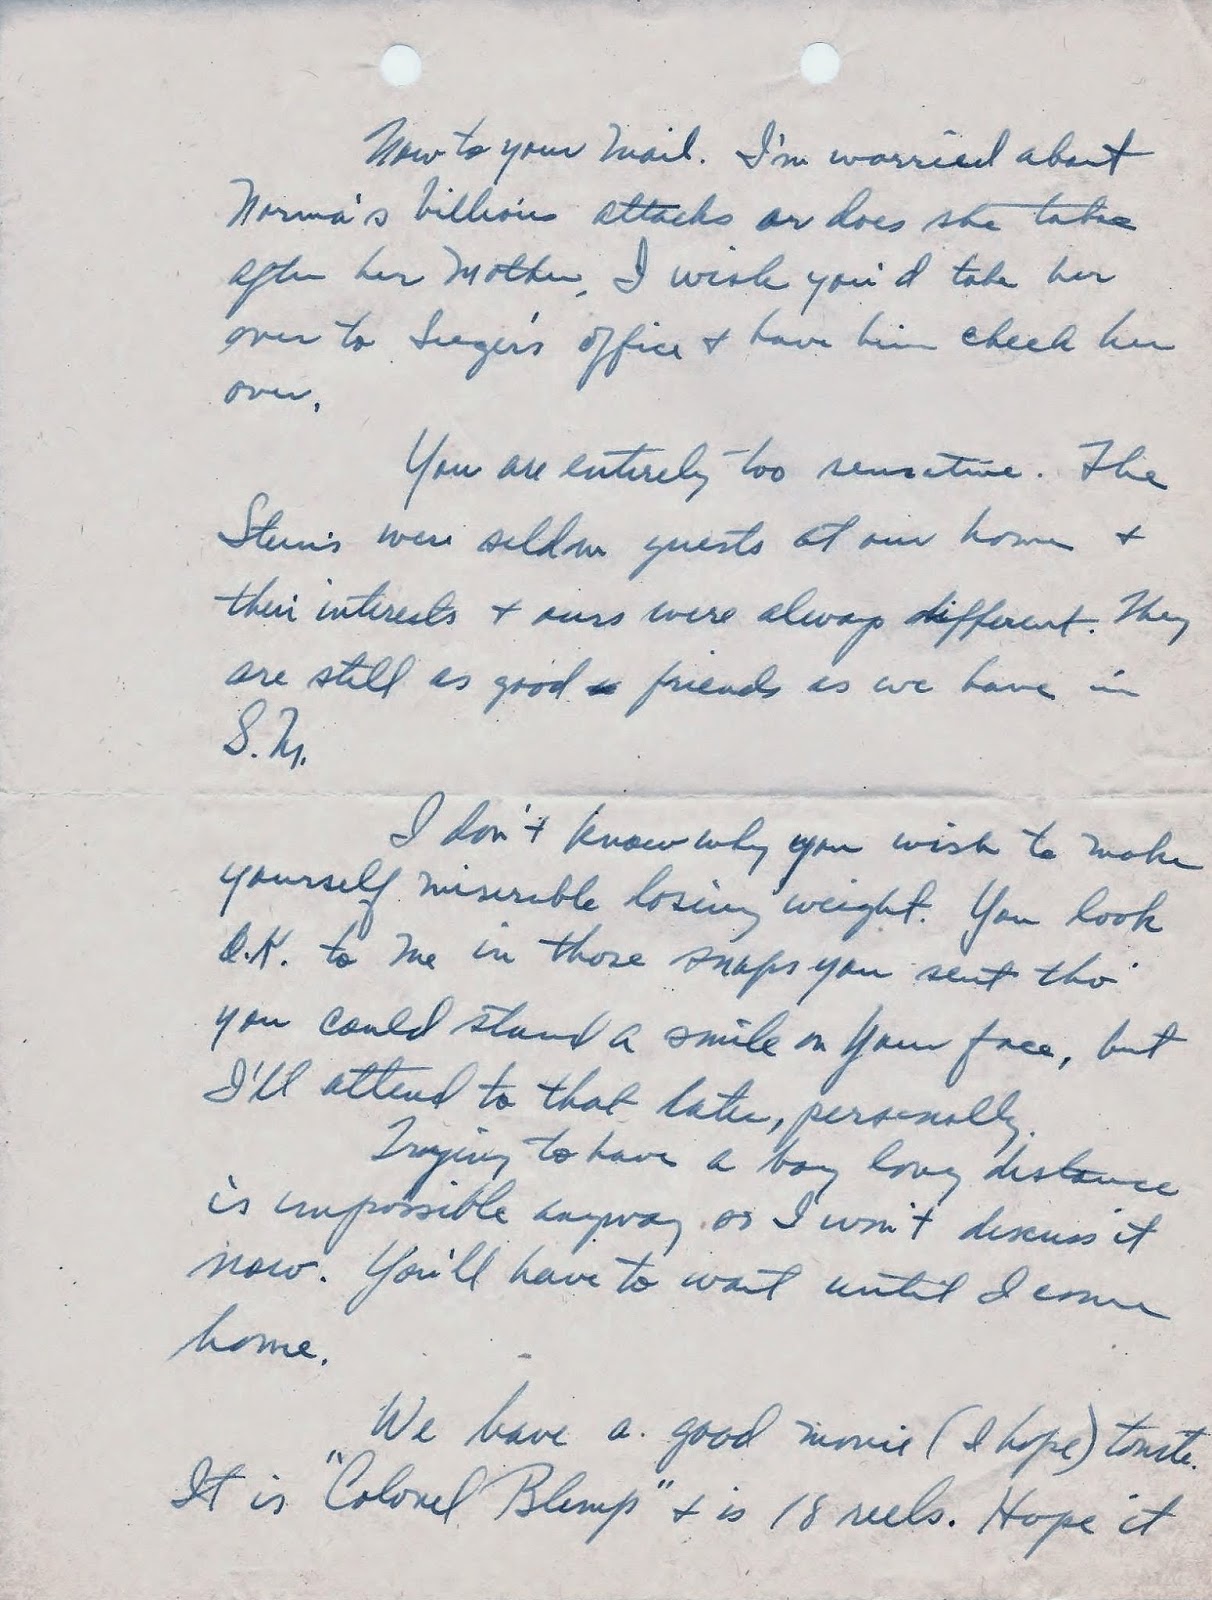 Now to your mail. I'm worried about
Norma's billious attacks or does she take
after her Mother. I wish you'd take her
over to Singer's office + have him check her
over.
You are entirely too sensative. The
Stein's were seldom guests at our home +
their interests + ours were always different. They
are still as good friends as we have in
S.M.
I don't know why you wish to make
yourself miserible losing weight. You look
O.K. to me in those snaps you sent tho'
you could stand a smile on your face, but
I'll attend to that later, personally.
Trying to have a boy long distance
is impossible anyway so I won't discuss it
now. You'll have to wait until I come
home.
We have a good movie (I hope) tonite.
It is "Colonel Blimp" + is 18 reels. Hope it